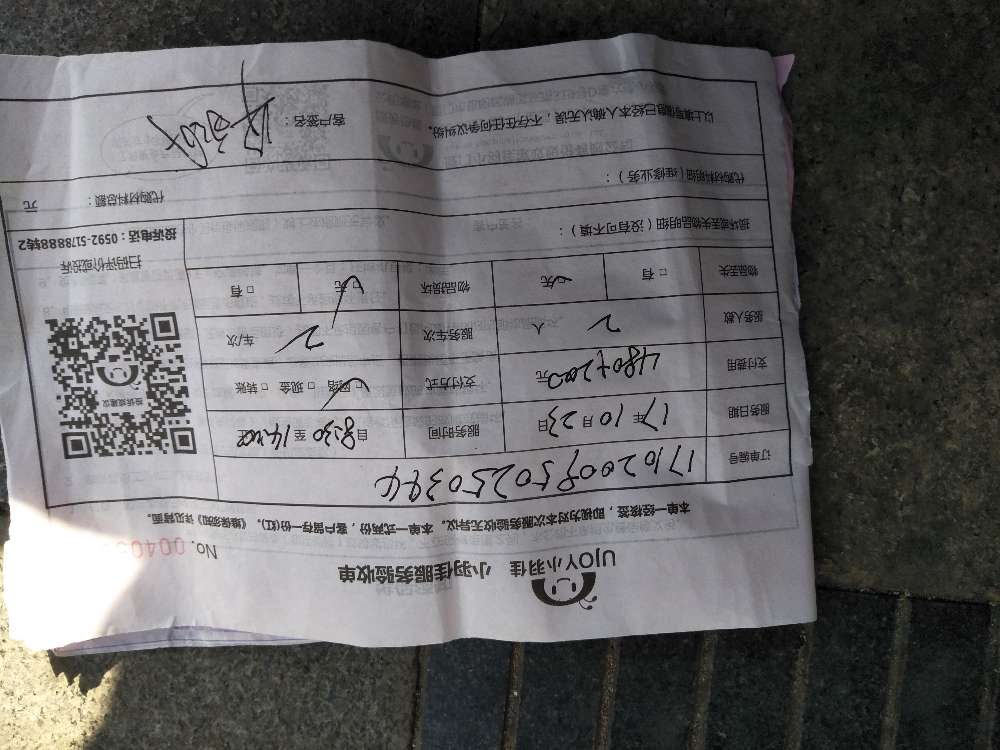 UJOY小羽佳 小羽佳服务验收单
No. 0040
本单一经核签，即视为对本次服务验收无异议。本单一式两份，客户留存一份(红)。《维保须知》详见背面。
订单编号 17102009502503944
服务日期 17年10月23日 服务时间 自8:30至14:00
支付费用 480+200元 支付方式 □网络 □现金 □转账
服务人数 2人 服务车次 2 车/次
物品丢失 □有 □无 物品损坏 □无 □有
扫码评价或投诉
投诉电话：0592-5178888转2
损坏或丢失物品明细（没有可不填）：
代购材料明细（维修业务）： 代购材料总额： 元
以上填写信息已经本人确认无误，不存在任何争议纠纷。 客户签名：
投诉或建议